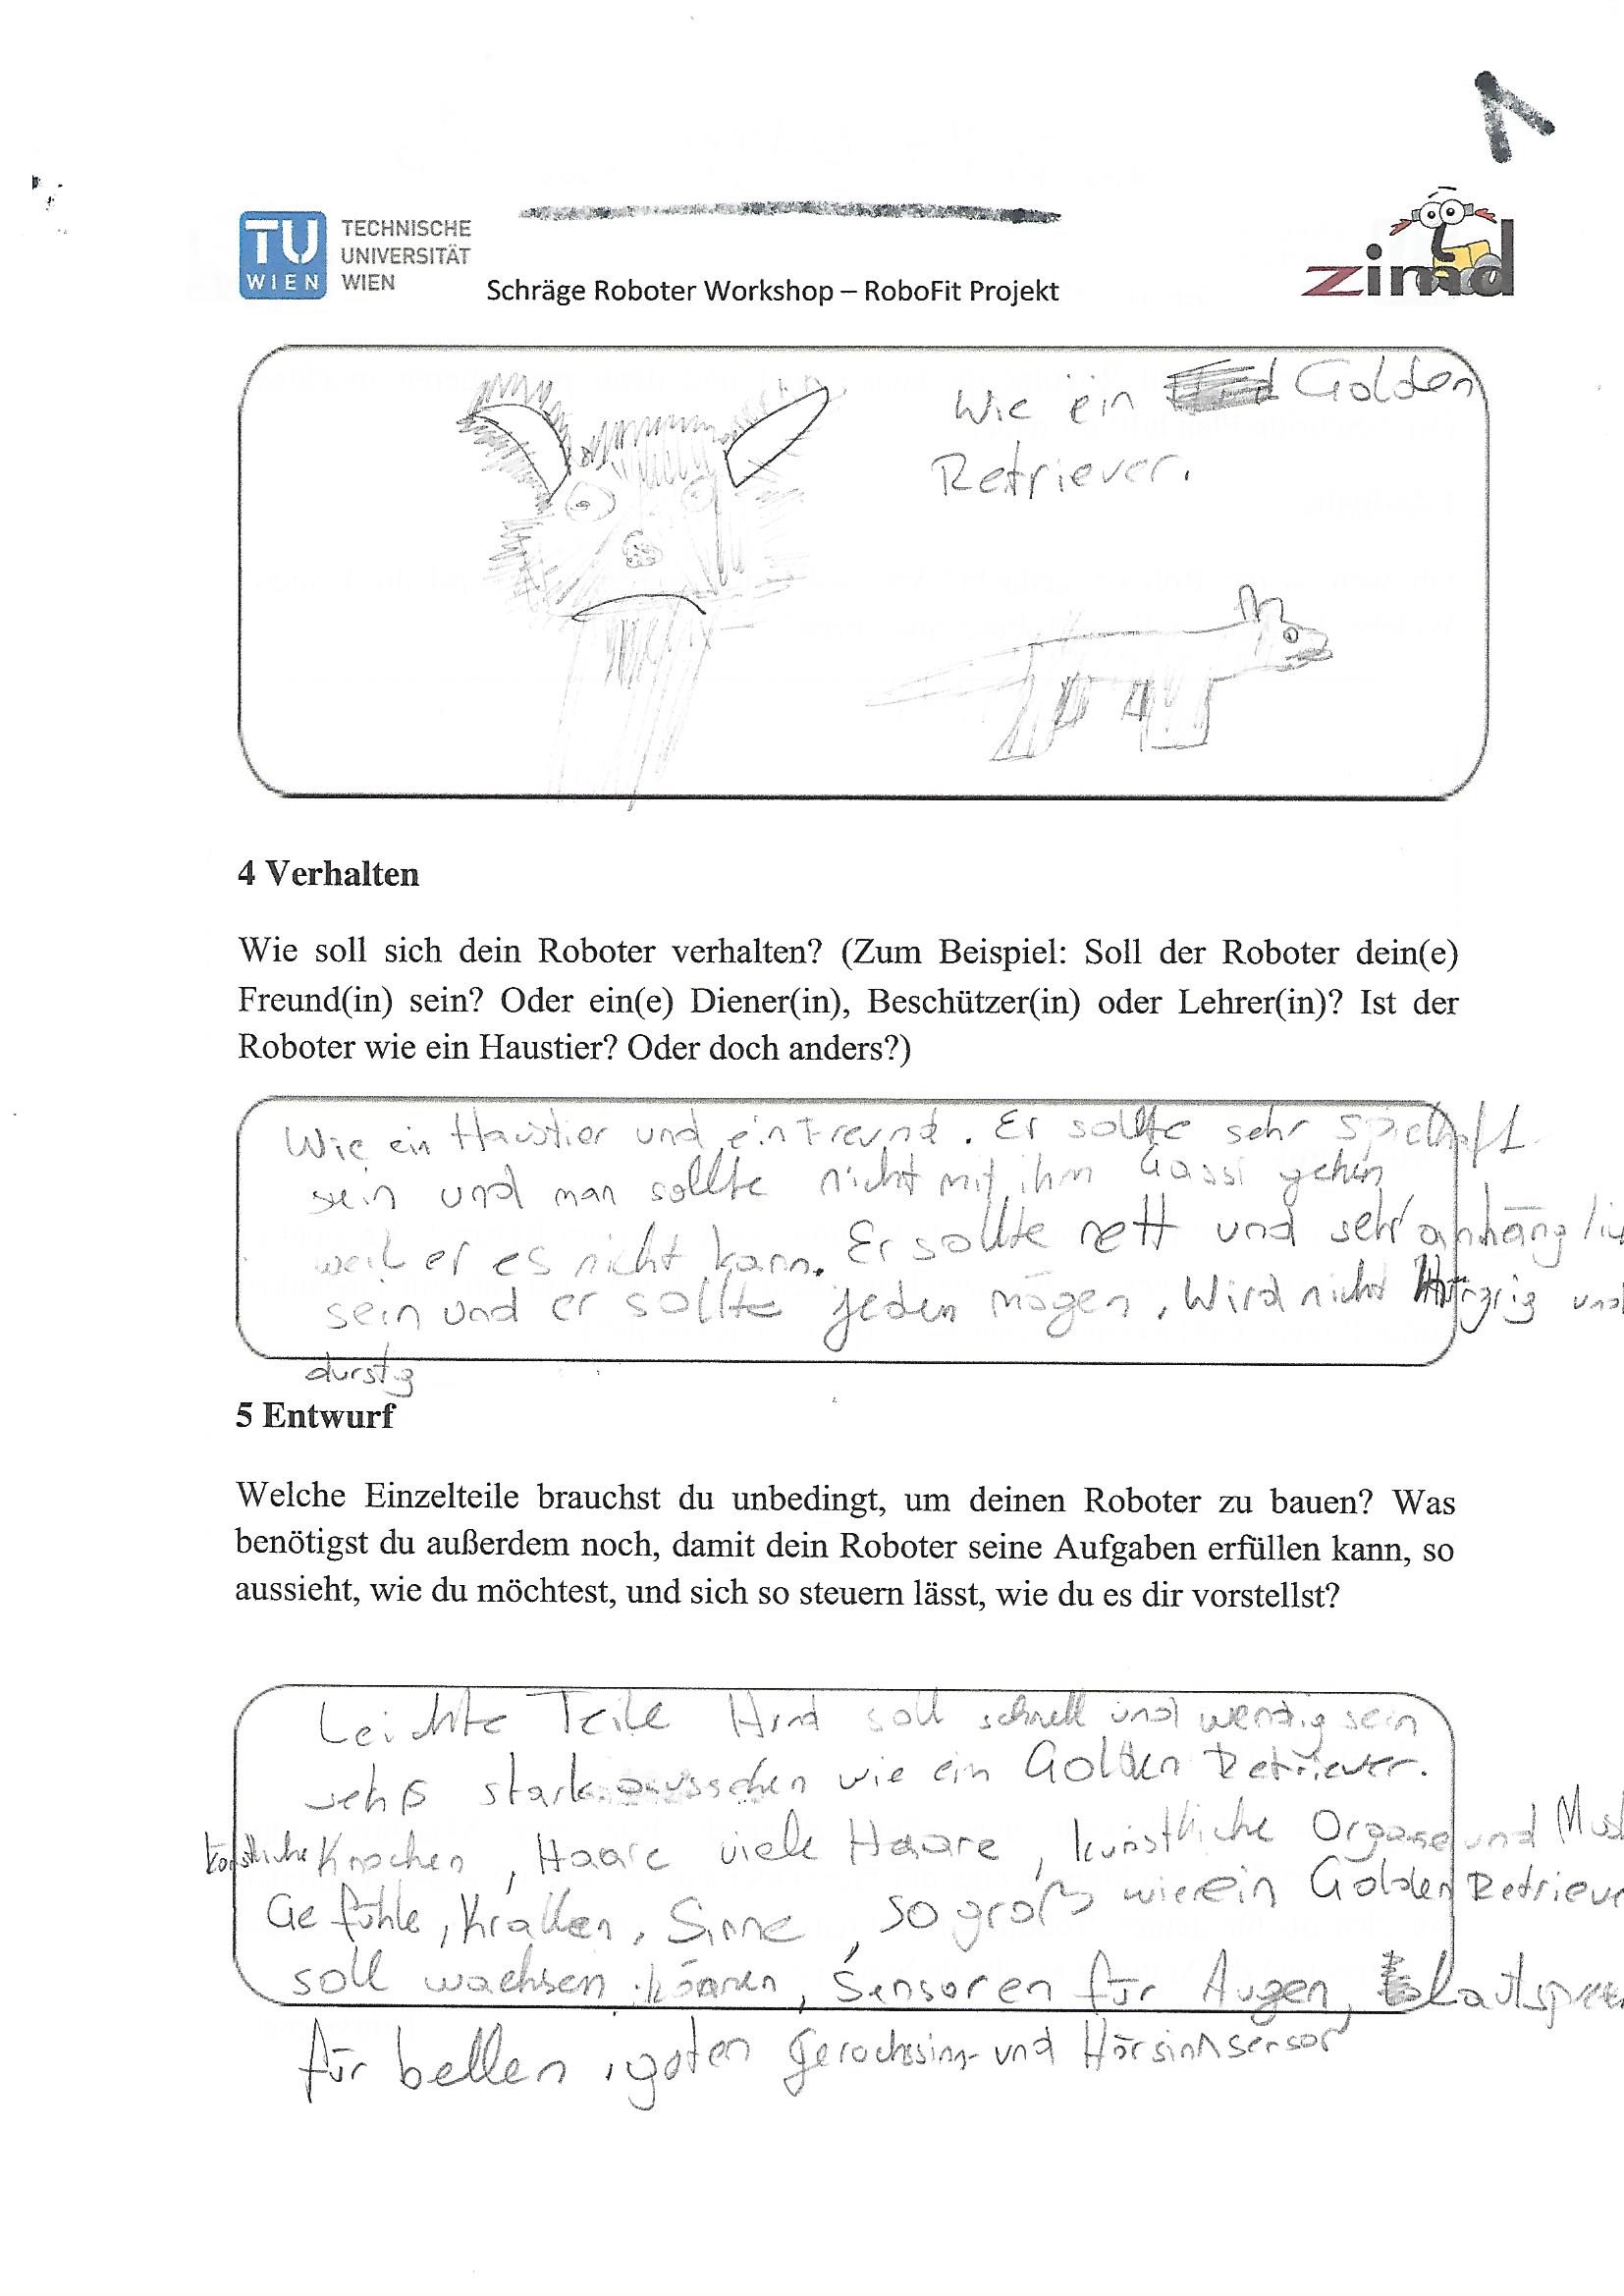 TU
WIEN
TECHNISCHE
UNIVERSITÄT
WIEN
Schräge Roboter Workshop – RoboFit Projekt
zimd
Wie ein Golden
Retriever.
4 Verhalten
Wie soll sich dein Roboter verhalten? (Zum Beispiel: Soll der Roboter dein(e)
Freund(in) sein? Oder ein(e) Diener(in), Beschützer(in) oder Lehrer(in)? Ist der
Roboter wie ein Haustier? Oder doch anders?)
Wie ein Haustier und ein Freund. Er sollte sehr spielhaft
sein und man sollte nicht mit ihm Gassi gehen
weil er es nicht kann. Er sollte nett und sehr anhänglic
sein und er sollte jeden mögen, Wird nicht Hungrig und
durstig
5 Entwurf
Welche Einzelteile brauchst du unbedingt, um deinen Roboter zu bauen? Was
benötigst du außerdem noch, damit dein Roboter seine Aufgaben erfüllen kann, so
aussieht, wie du möchtest, und sich so steuern lässt, wie du es dir vorstellst?
Leichte Teile Hund soll schnell und wendig sein
stark aussehen wie ein Golden Retriever.
künstliche Knochen, Haare viele Haare, künstliche Organe und Mus
Gefühle, Krallen, Sinne, so groß wie ein Golden Retrieve
soll wachsen können, Sensoren für Augen, Lautspre
für bellen, guten Geruchssinn- und Hörsinnsensor